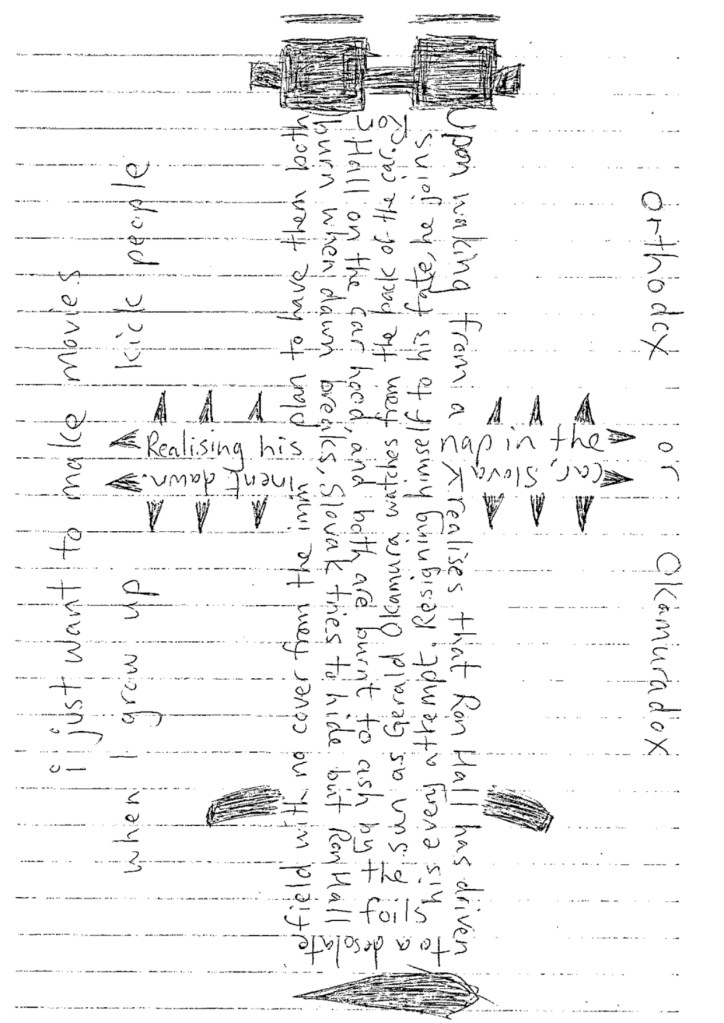 orthodox or Okamuradox
Upon waking from a
nap in the
car, Slovak
realises that Ron Hall has driven
to a desolate
field with no cover from the imm
inent dawn.
Realising his
plan to have them both
burn when dawn breaks, Slovak tries to hide but Ron Hall
foils
his every attempt. Resigning himself to his fate, he joins
Ron
Hall on the car hood, and both are burnt to ash by t
he sun as Gerald Okamura watches from the back of the car.
i just want to make movies
when I grow up kick people